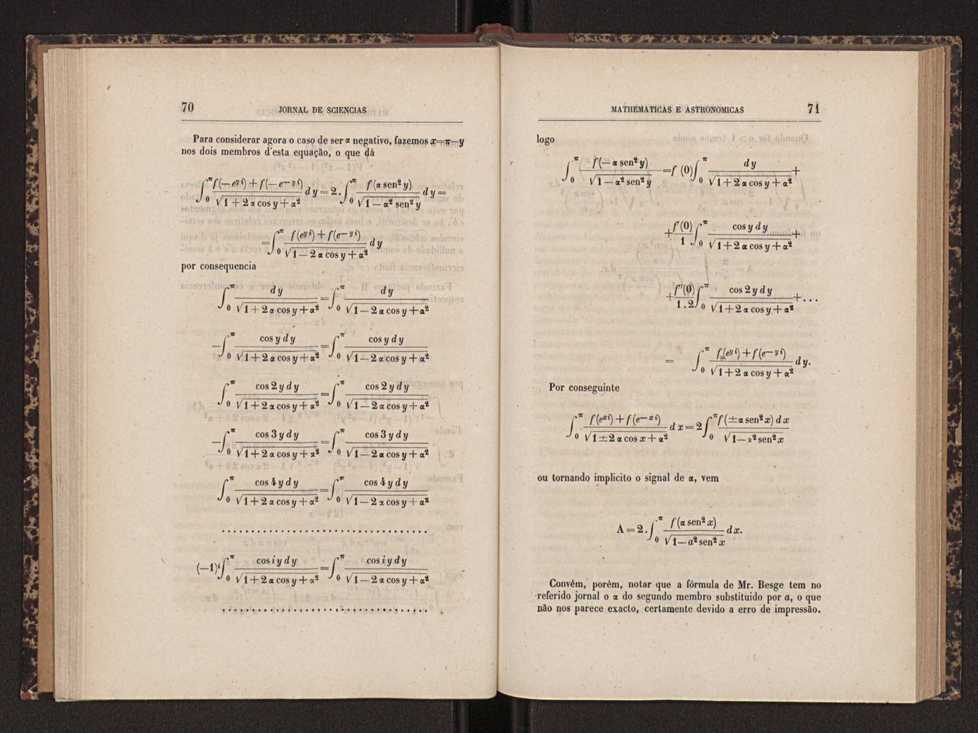 70 JORNAL DE SCIENCIAS
Para considerar agora o caso de ser α negativo, fazemos x=π−y
nos dois membros d'esta equação, o que dá
∫₀^π [f(−e^{yi})+f(−e^{−yi})]/√(1+2α cos y+α²) dy = 2.∫₀^π f(α sen² y)/√(1−α² sen² y) dy =
=∫₀^π [f(e^{yi})+f(e^{−yi})]/√(1−2α cos y+α²) dy
por consequencia
∫₀^π dy/√(1+2α cos y+α²) = ∫₀^π dy/√(1−2α cos y+α²)
−∫₀^π cos y dy/√(1+2α cos y+α²) = ∫₀^π cos y dy/√(1−2α cos y+α²)
∫₀^π cos 2y dy/√(1+2α cos y+α²) = ∫₀^π cos 2y dy/√(1−2α cos y+α²)
−∫₀^π cos 3y dy/√(1+2α cos y+α²) = ∫₀^π cos 3y dy/√(1−2α cos y+α²)
∫₀^π cos 4y dy/√(1+2α cos y+α²) = ∫₀^π cos 4y dy/√(1−2α cos y+α²)
. . . . . . . . . . . . . . . . . . . . . . . . . . . . . .
(−1)^i ∫₀^π cos iy dy/√(1+2α cos y+α²) = ∫₀^π cos iy dy/√(1−2α cos y+α²)
. . . . . . . . . . . . . . . . . . . . . . . . . . . . . .
MATHEMATICAS E ASTRONOMICAS 71
logo
∫₀^π f(−α sen² y)/√(1−α² sen² y) = f(0)∫₀^π dy/√(1+2α cos y+α²) +
+ f'(0)/1 . ∫₀^π cos y dy/√(1+2α cos y+α²) +
+ f''(0)/1.2 ∫₀^π cos 2y dy/√(1+2α cos y+α²) + . . .
= ∫₀^π [f(e^{yi})+f(e^{−yi})]/√(1+2α cos y+α²) dy.
Por conseguinte
∫₀^π [f(e^{xi})+f(e^{−xi})]/√(1±2α cos x+α²) dx = 2∫₀^π f(±α sen² x) dx/√(1−α² sen² x)
ou tornando implicito o signal de α, vem
A = 2.∫₀^π f(α sen² x)/√(1−a² sen² x) dx.
Convém, porém, notar que a fórmula de Mr. Besge tem no
referido jornal o α do segundo membro substituido por a, o que
não nos parece exacto, certamente devido a erro de impressão.